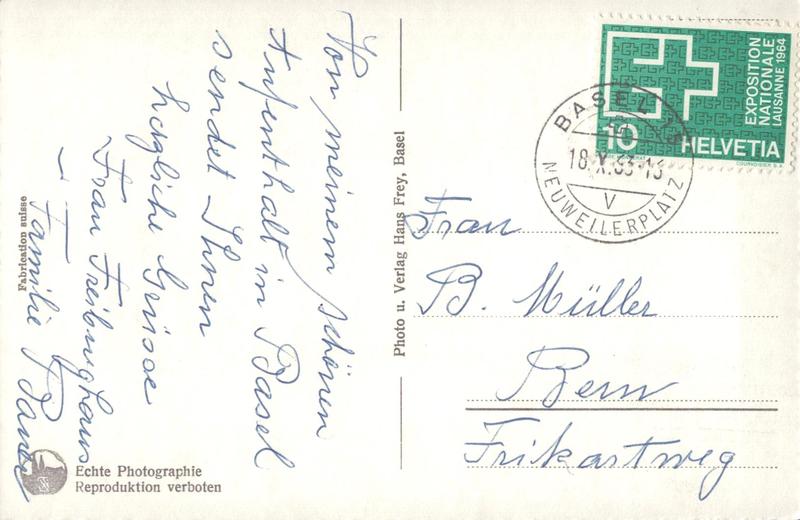 Von meinem schönen
Aufenthalt in Basel
sendet Ihnen
herzliche Grüsse
Frau Freiburghaus
Familie
Fabrication suisse
Echte Photographie
Reproduktion verboten
Photo u. Verlag Hans Frey, Basel
EXPOSITION
NATIONALE
LAUSANNE 1964
10 HELVETIA
COURVOISIER S.A.
BASEL
18.X.63-13
V
NEUWEILERPLATZ
Frau
B. Müller
Bern
Frikartweg